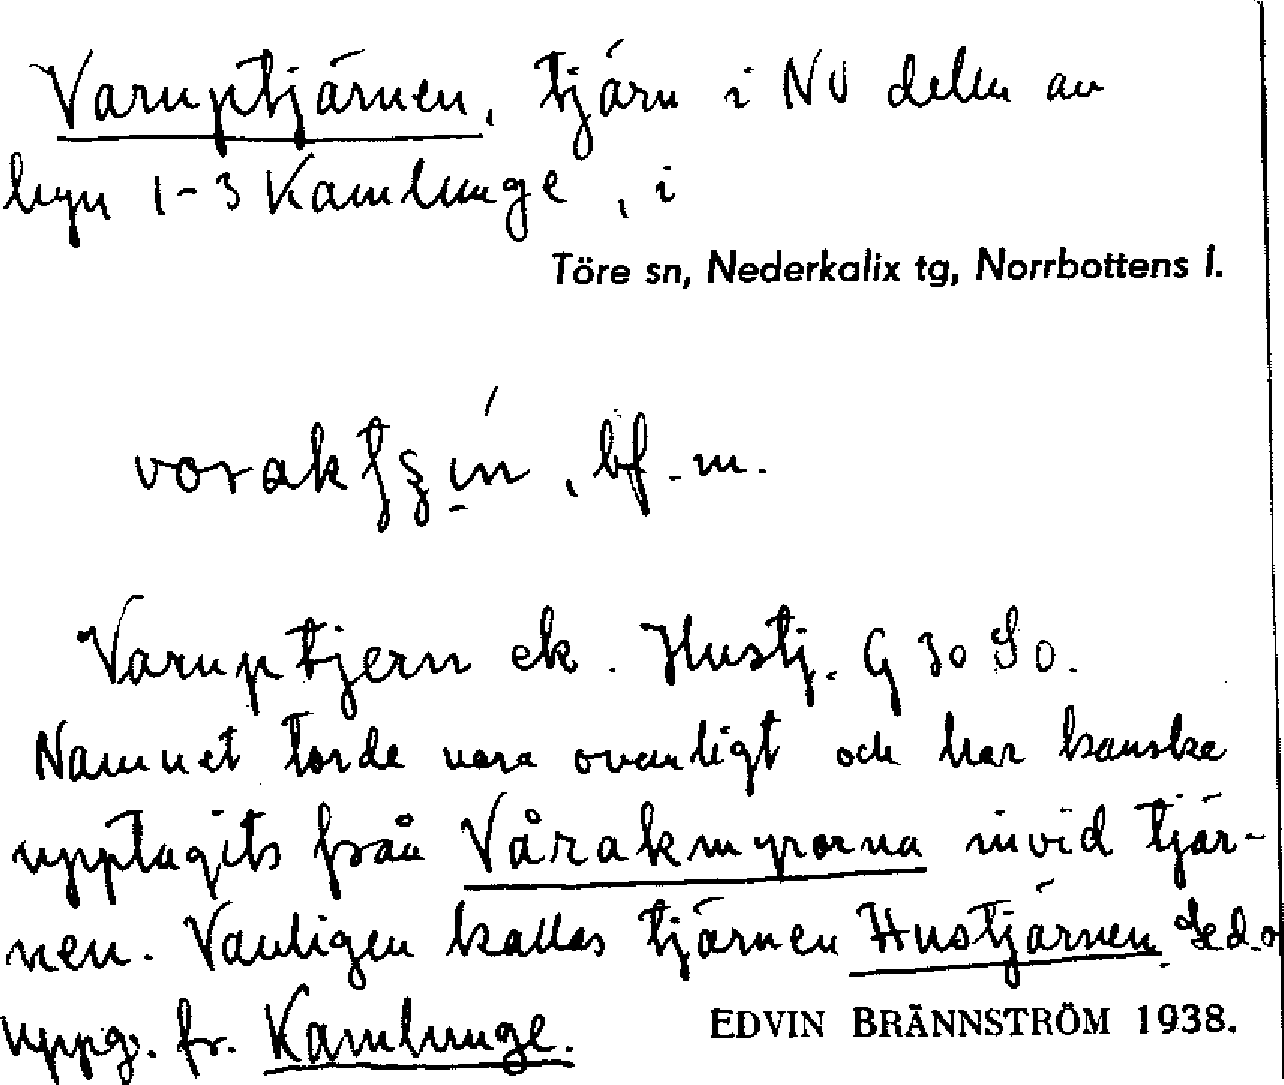 Varuptjärnen, tjärn i NV delen av
byn 1-3 Kamlunge, i
Töre sn, Nederkalix tg, Norrbottens l.
bf. m.
Varuptjern ek. Hustj. G 30 So.
Namnet torde vara ovanligt och har kanske
upptagits från Vårakmyrorna invid tjär-
nen. Vanligen kallas tjärnen Hustjärnen. Se d. o
uppg. fr. Kamlunge.
EDVIN BRÄNNSTRÖM 1938.